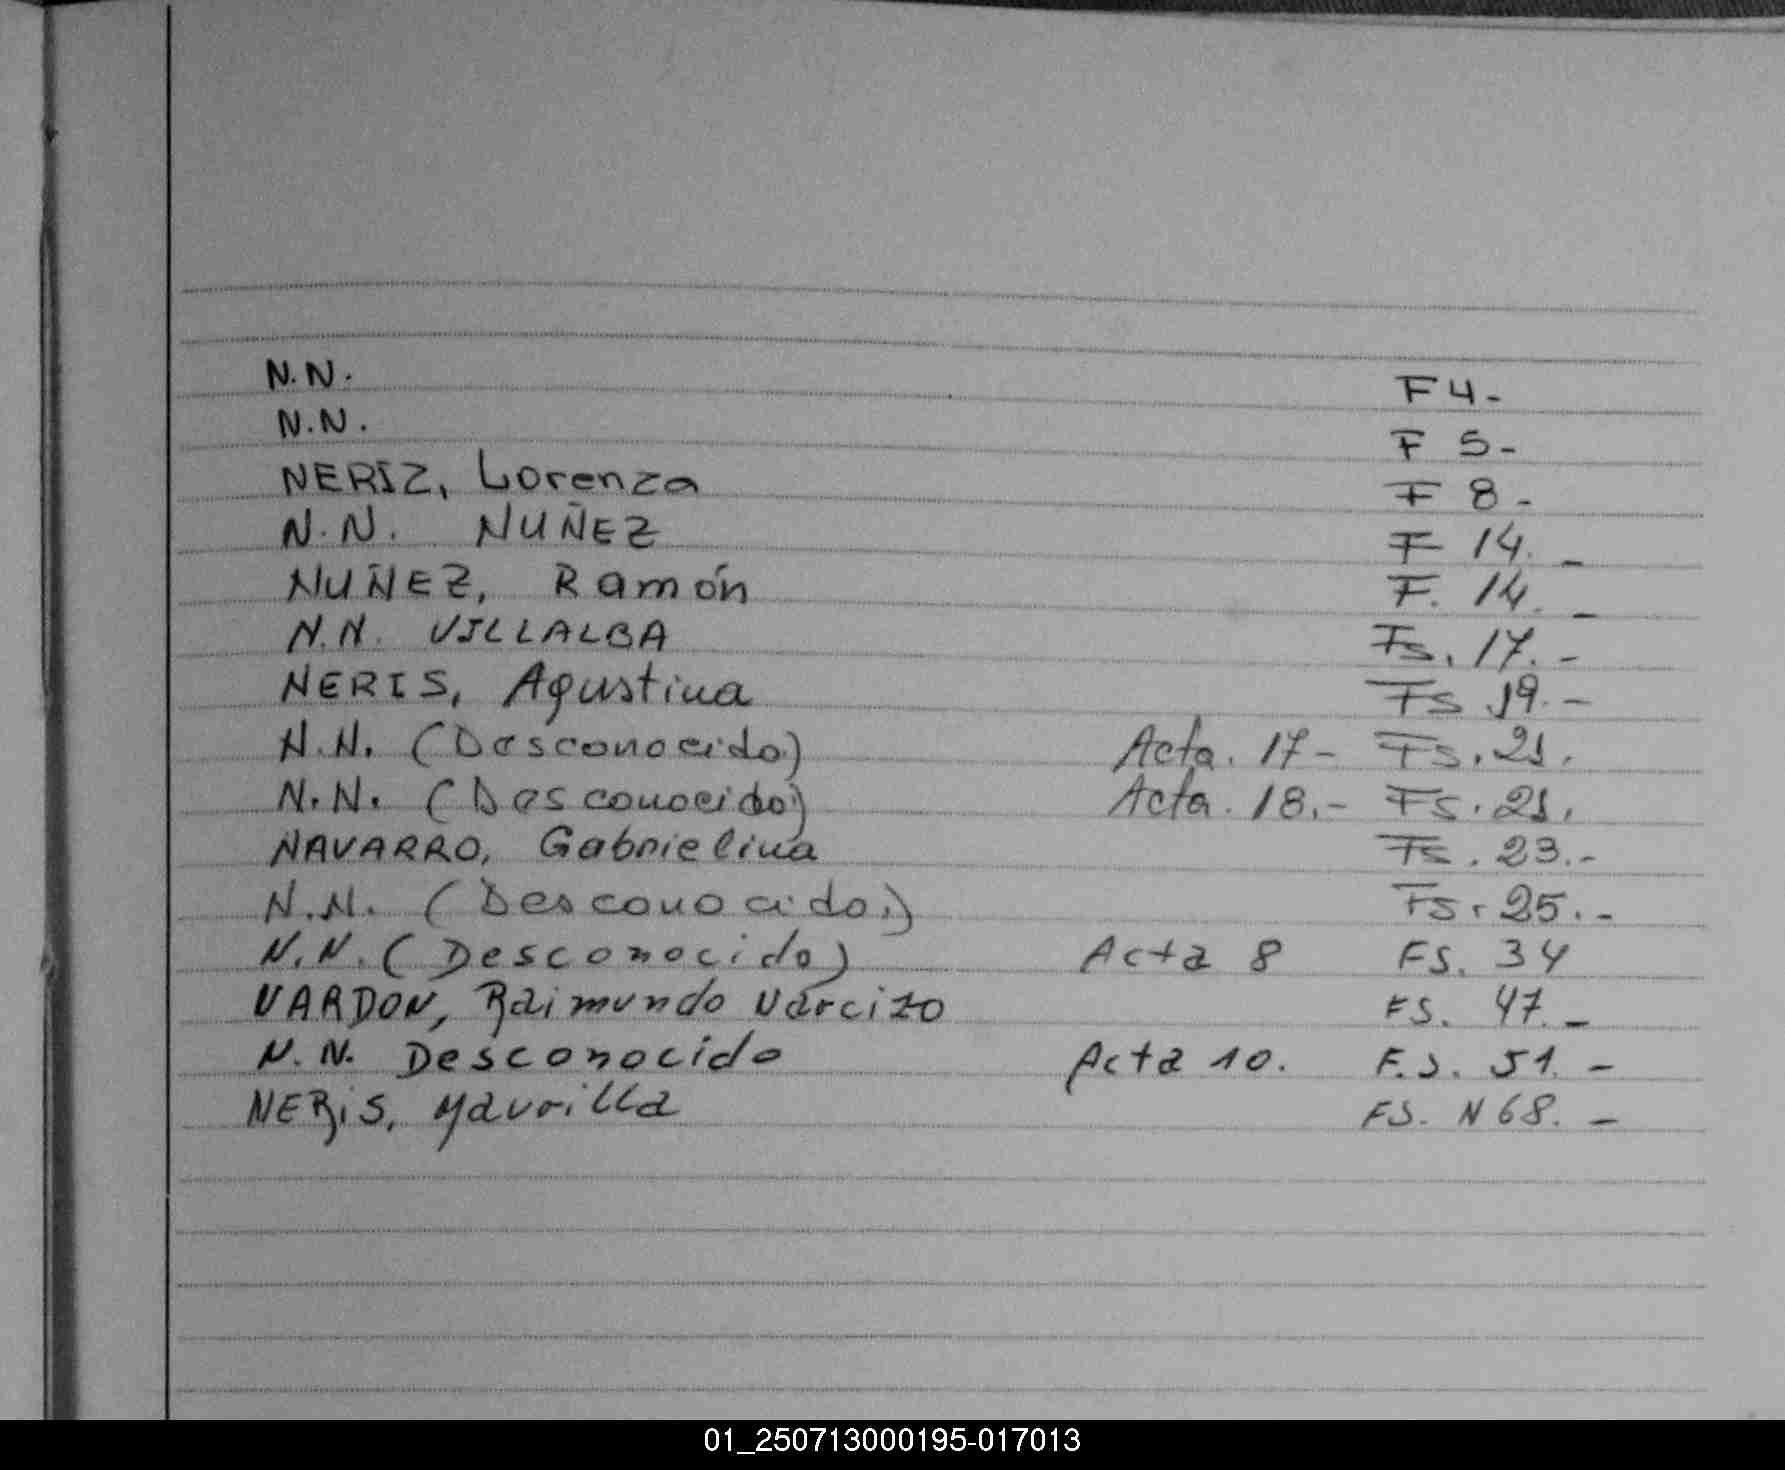 N.N. F 4-
N.N. F 5-
NERIZ, Lorenza F 8-
N.N. NUÑEZ F 14. -
NUÑEZ, Ramón F. 14. -
N.N. VILLALBA Fs. 17.-
NERIS, Agustina Fs 19.-
N.N. (Desconocido) Acta. 17- Fs. 21.
N.N. (Desconocido) Acta. 18.- Fs. 21.
NAVARRO, Gabrielina Fs. 23.-
N.N. (Desconocido.) Fs. 25.-
N.N. (Desconocido) Acta 8 FS. 34
NARDON, Raimundo Narcizo FS. 47.-
N.N. Desconocido Acta 10. F.S. 51.-
NERiS, Maurilla FS. N 68.-
01_250713000195-017013